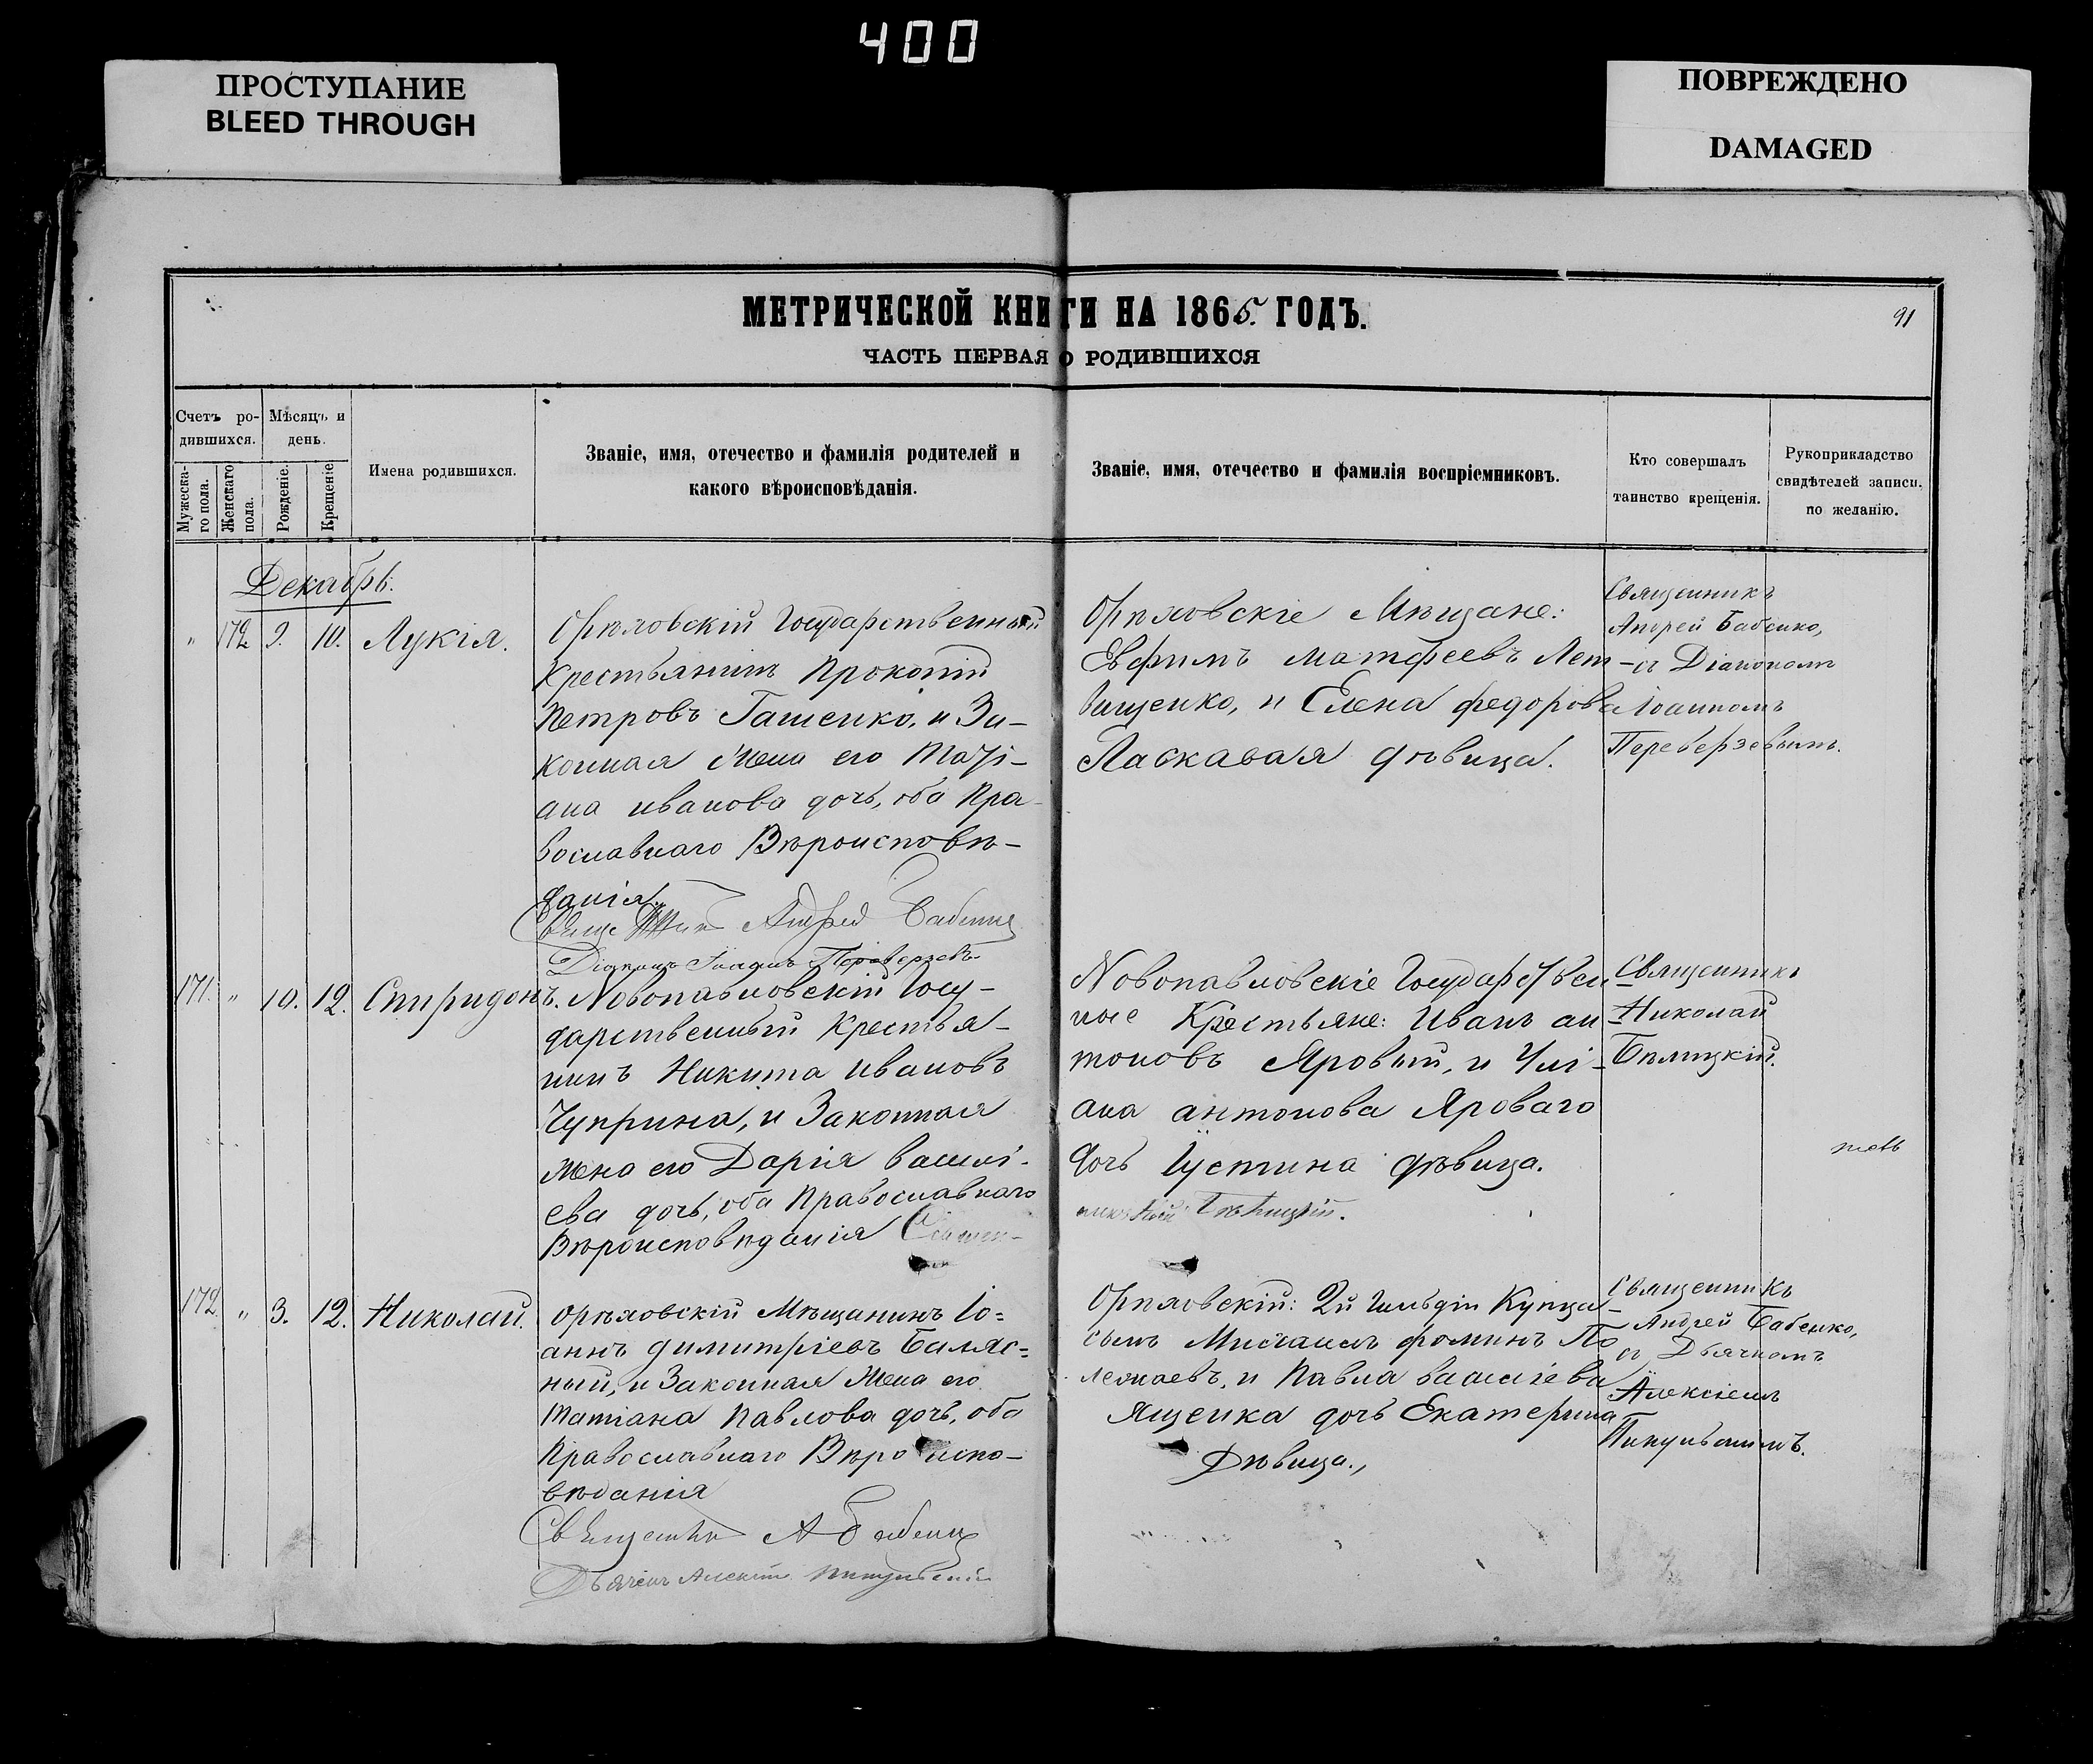 400
ПРОСТУПАНИЕ
BLEED THROUGH
ПОВРЕЖДЕНО
DAMAGED
МЕТРИЧЕСКОЙ КНИГИ НА 1865. ГОДЪ.
91
ЧАСТЬ ПЕРВАЯ О РОДИВШИХСЯ
Счетъ ро-
дившихся.
Мужеска-
го пола.
Женскаго
пола.
Мѣсяцъ и
день.
Рожденіе.
Крещеніе
Имена родившихся.
Званіе, имя, отечество и фамилія родителей и
какого вѣроисповѣданія.
Званіе, имя, отечество и фамилія воспріемниковъ.
Кто совершалъ
таинство крещенія.
Рукоприкладство
свидѣтелей записи.
по желанію.
Декабрь.
" 172 9. 10. Лукія.
Орѣховскій Государственный
Крестьянинъ Прокопій
Петровъ Гашенко, и За-
конная Жена его Таті-
ана иванова дочь, оба Пра-
вославнаго Вѣроисповѣ-
данія.
Священникъ Андрей Бабенко
Діаконъ Іоаннъ Переверзевъ
Орѣховскіе Мѣщане:
Евфимъ матфеевъ Лет-
вищенко, и Елена федорова
Ласкавая дѣвица.
Священникъ
Андрей Бабенко,
съ Діакономъ
Іоанномъ
Переверзевымъ.
171. " 10. 12. Спиридонъ.
Новопавловскій Госу-
дарственный Крестья-
нинъ Никита ивановъ
Чуприна, и Законная
жена его Дарія василі-
ева дочь, оба Православнаго
Вѣроисповѣданія Священ-
Новопавловскіе Государствен
ные Крестьяне: Иванъ ан
тоновъ Яровый, и Улі-
ана антонова Яроваго
дочь Іустина дѣвица.
Бѣлицкій.
Священникъ
Николай
Бѣлицкій.
172 " 3. 12. Николай.
Орѣховскій Мѣщанинъ Іо=
аннъ димитріевъ Баляс=
ный, и Законная Жена его
Татіана Павлова дочь, оба
Православнаго Вѣроиспо-
вѣданія
Священникъ А Бабенко
Дьячекъ Алексій Пикульскій
Орѣховскій: 2й Гильдіи Купца-
сынъ Михаилъ фоминъ По
лежаевъ, и Павла василіева
Ященка дочь Екатерина
Дѣвица.,
Священникъ
Андрей Бабенко,
съ Дьячкомъ
Алексіемъ
Пикульскимъ.